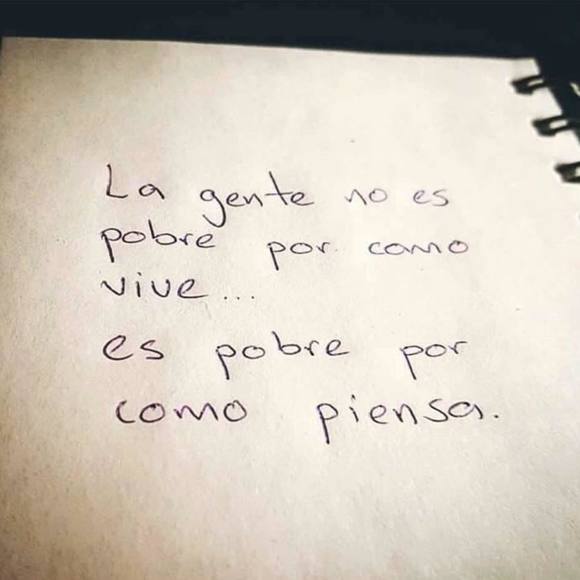 La gente no es
pobre por como
vive...
es pobre por
como piensa.